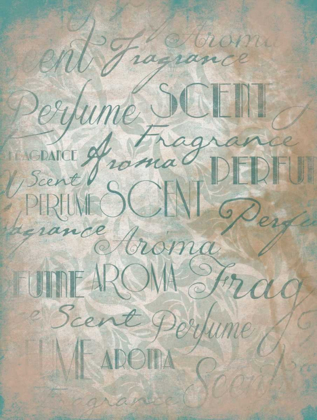 Aroma
cent Fragrance
Perfume SCENT
Fragrance
FRAGRANCE Aroma PERFUM
Scent
PERFUME SCENT Perfu
agrance
Aroma
FUME AROMA Frag
Scent Perfume
UME AROMA Scent
Fragrance